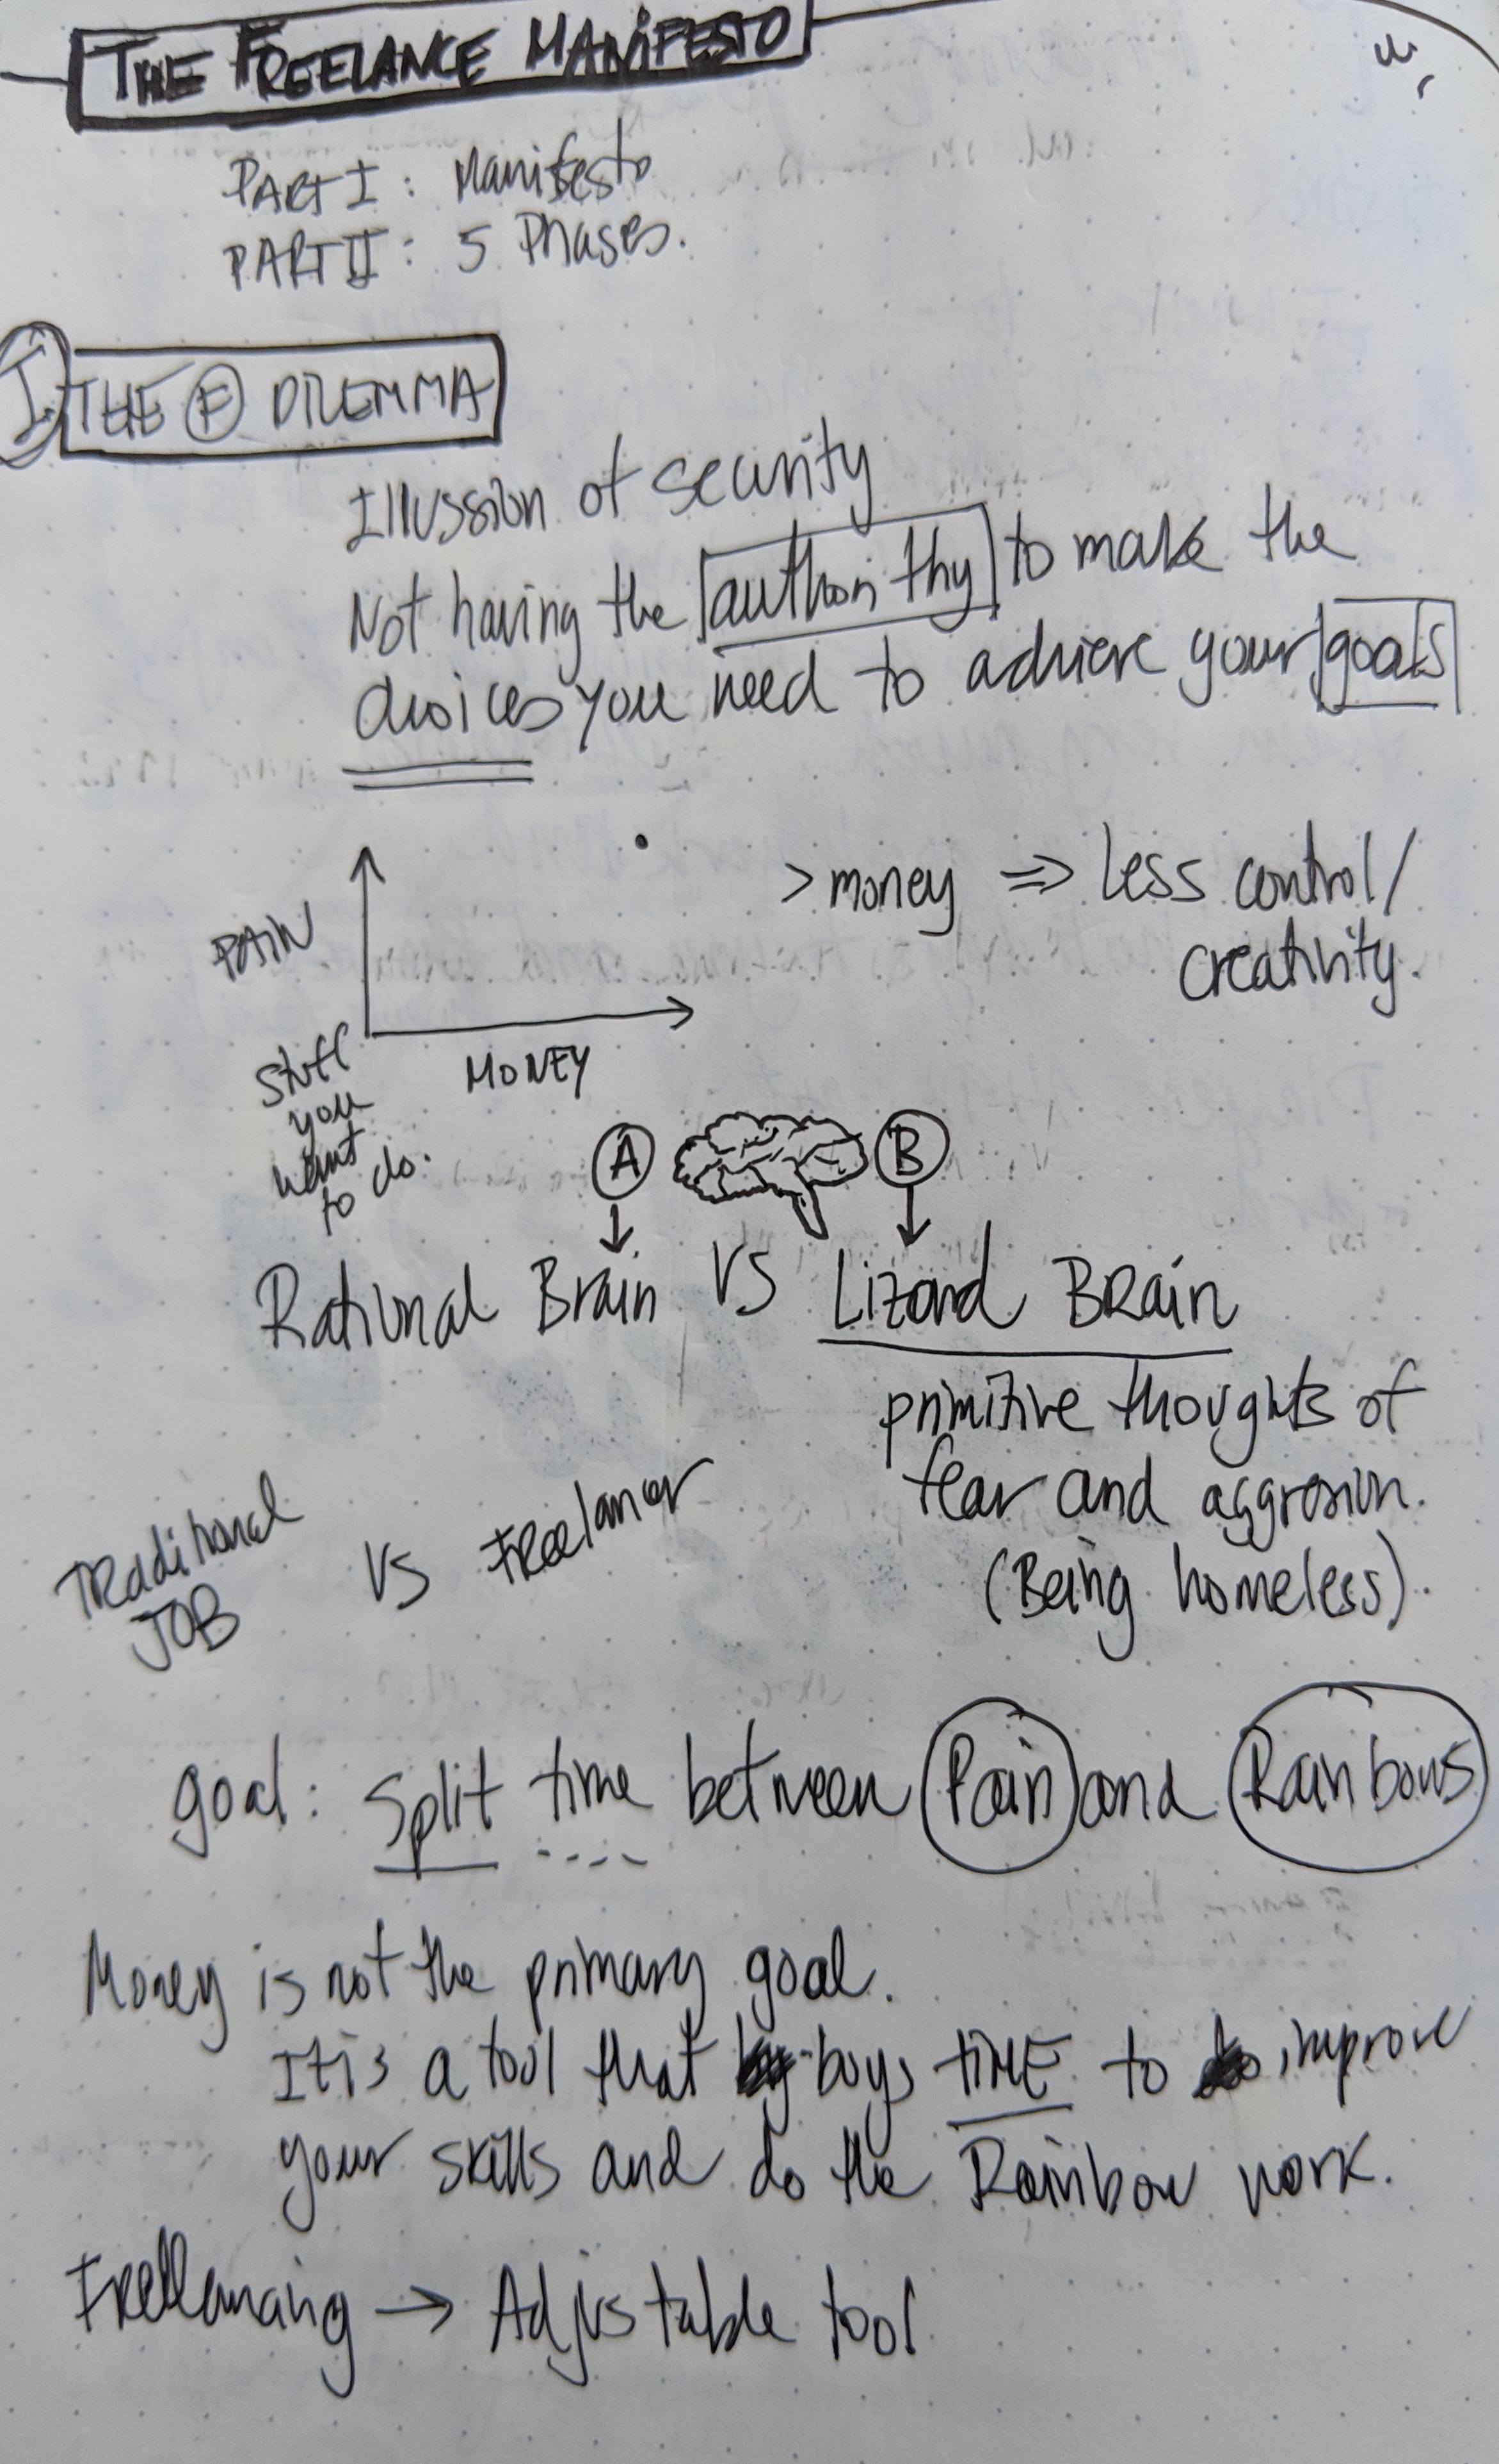 THE FREELANCE MANIFESTO
PART I : Manifesto
PART II : 5 Phases.
I THE F DILEMMA
Illussion of security
Not having the authorithy to make the
choices you need to achieve your goals
> money => Less control/
creativity.
PAIN
MONEY
Stuff
you
want
to do.
A B
Rational Brain VS Lizard BRain
primitive thoughts of
fear and aggresion.
(Being homeless).
TRaditional
JOB
VS FReelancer
goal: Split time between Pain and Rainbows
Money is not the primary goal.
It is a tool that buys TIME to improve
your skills and do the Rainbow work.
FReelancing → Adjustable tool